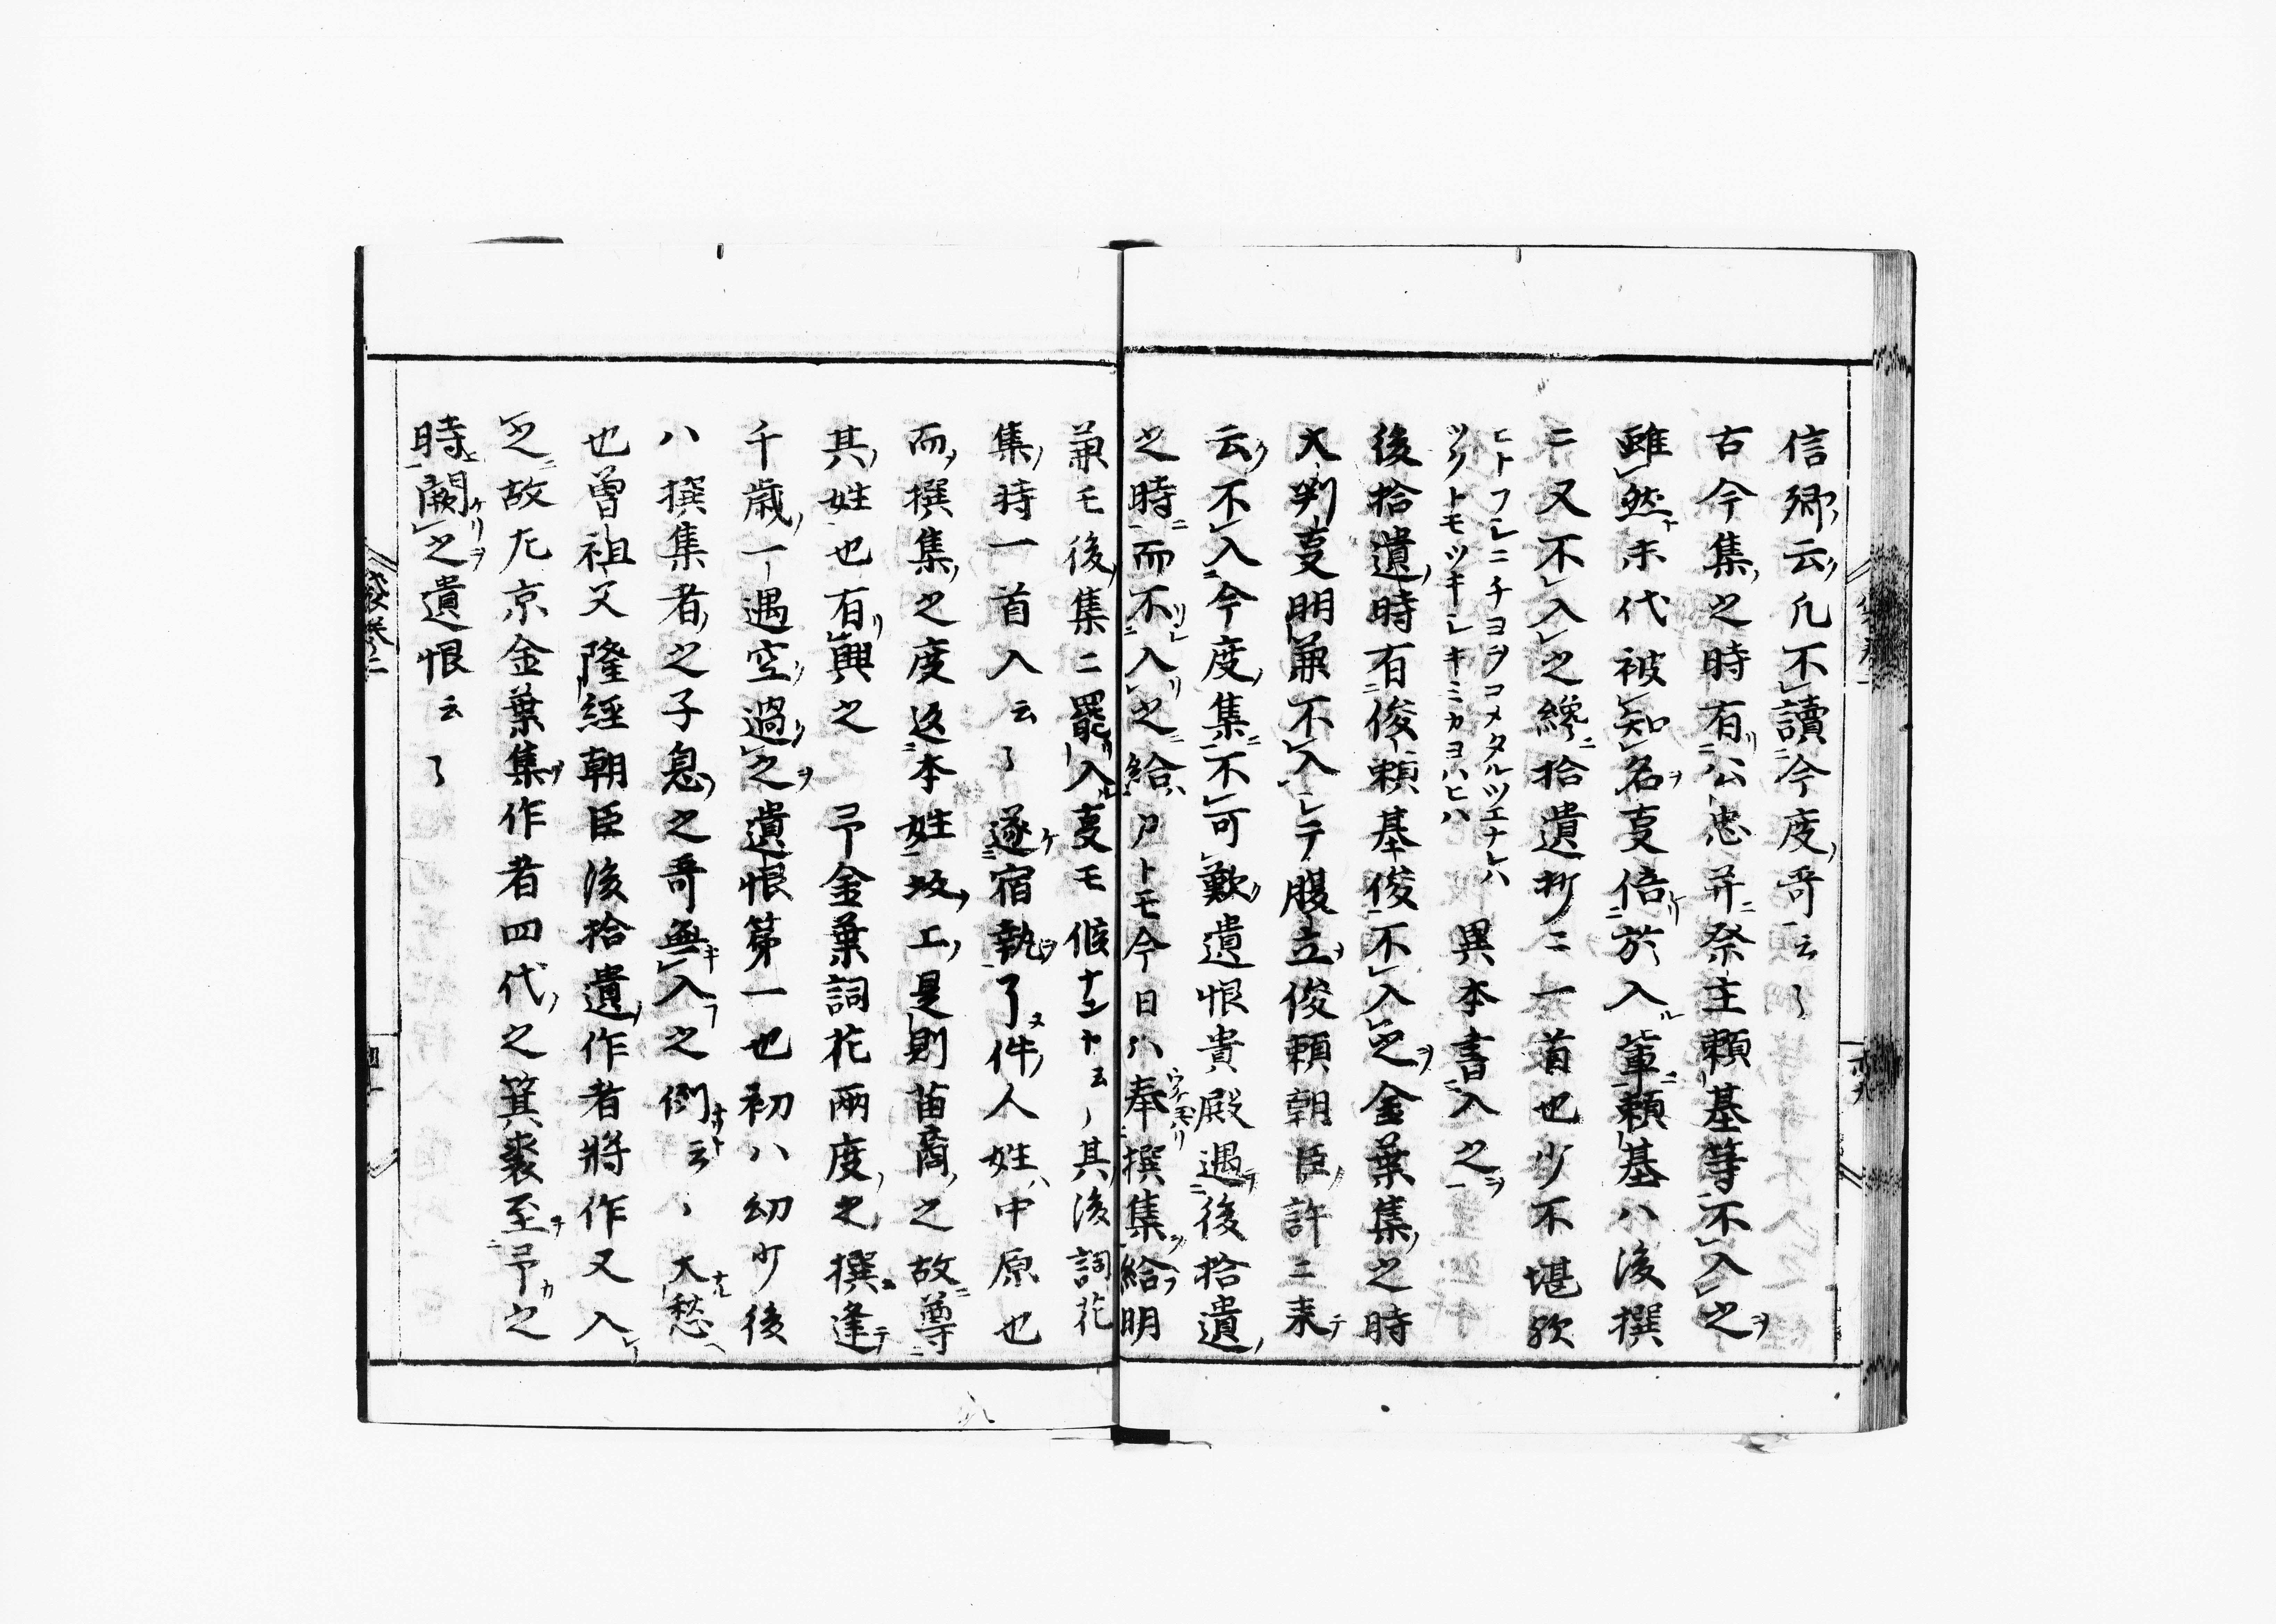 信卿云凡不讀今度哥云々
古今集之時有公忠并祭主頼基等不入之
雖然末代被知名事倍於入輩頼基ハ後撰
ニ又不入之纔拾遺抄ニ一首也少不堪歟
ヒトフシニチヨヲコメタルツエナレハ
ツクトモツキシキミカヨハヒハ
異本書入之
後拾遺時有俊頼基俊不入之金葉集之時
大判事明兼不入シテ腹立俊頼朝臣許ニ来
云不入今度集不可歎遺恨貴殿遇後拾遺
之時而不入之給シカトモ今日ハ奉撰集給明
兼モ後集ニ罷入事モ候ナント云々其後詞花
集時一首入云々遂宿執了件人姓中原也
而撰集之度返本姓坂上是則苗裔之故尊
其姓也有興之
予金葉詞花兩度之撰逢
千歳一遇空過之遺恨第一也初ハ幼少後
ハ撰集者之子息之哥無入之例云々大愁
也曽祖父隆経朝臣後拾遺作者將作又入
之故左京金葉集作者四代之箕裘至予之
時闕之遺恨云々
袋巻二